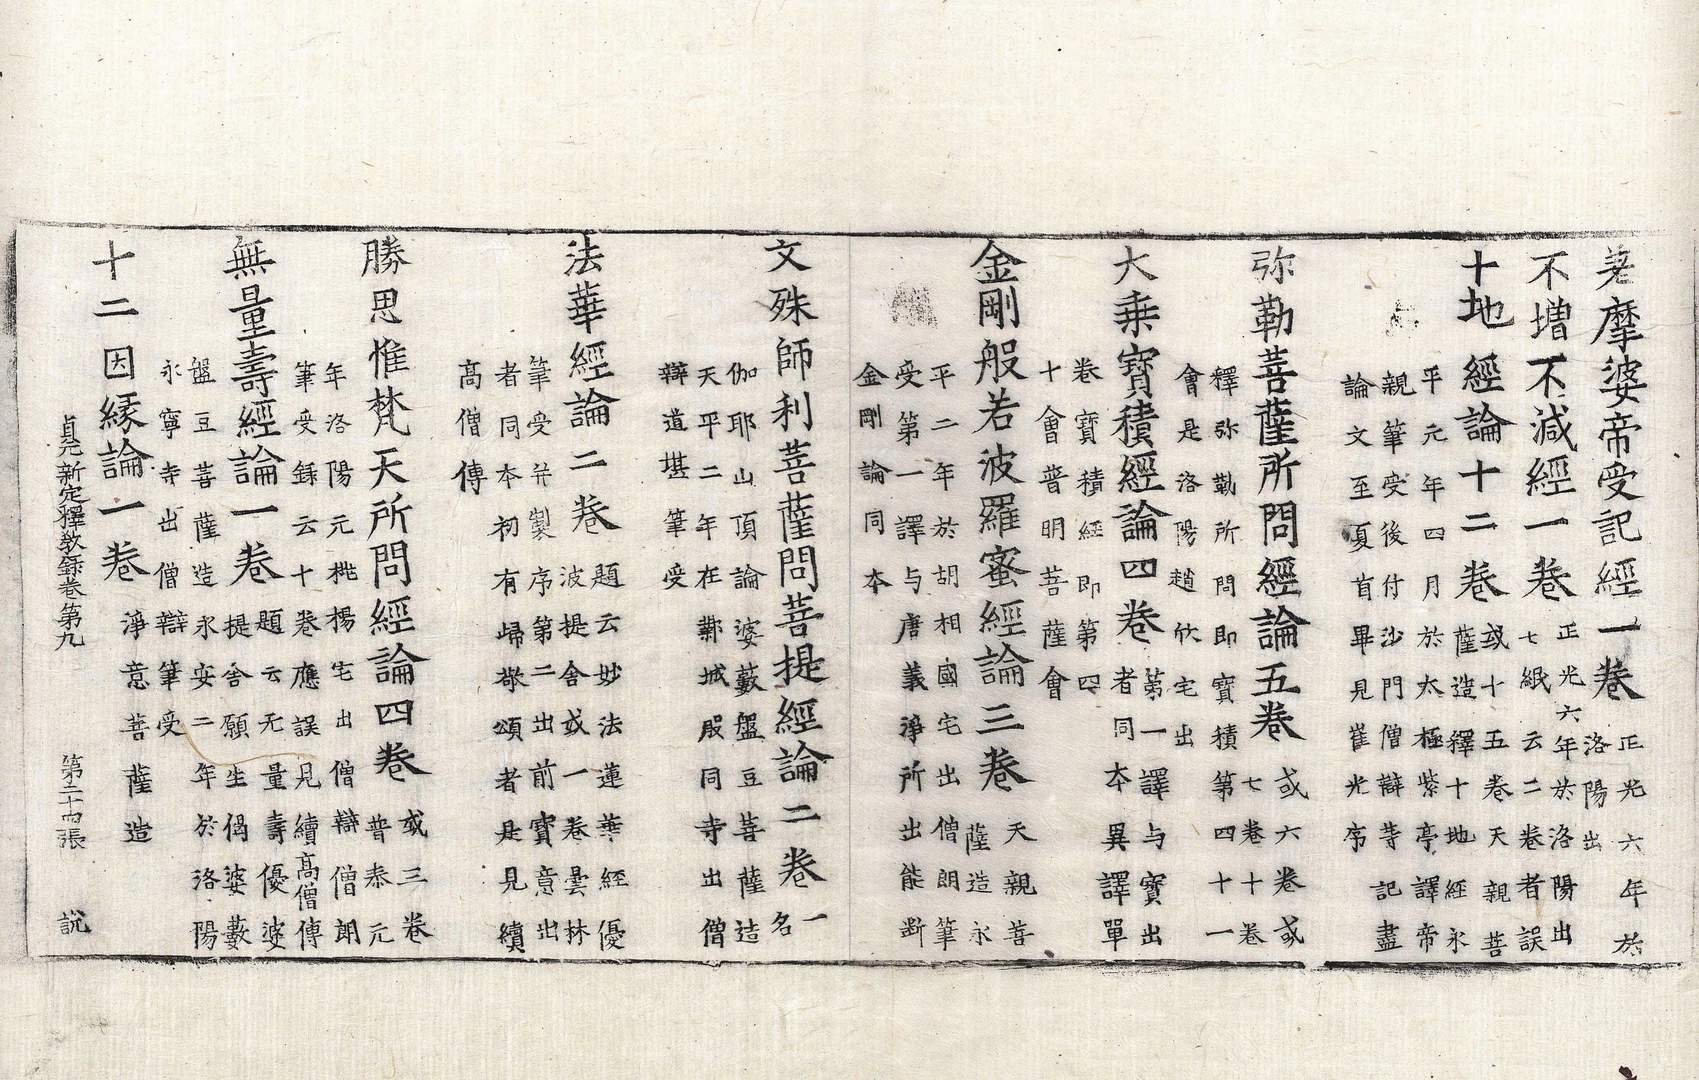 差摩婆帝受記經一卷 正光六年於
洛陽出
不增不減經一卷 正光六年於洛陽出
七紙云二卷者誤
十地經論十二卷 或十五卷天親菩
薩造釋十地經永
平元年四月於太極紫亭譯帝
親筆受後付沙門僧辯等記盡
論文至夏首畢見崔光序
弥勒菩薩所問經論五卷 或六卷或
七卷十卷
釋弥勒所問即寶積第四十一
會是洛陽趙欣宅出
大乘寶積經論四卷 第一譯与寶出
者同本異譯單
卷寶積經即第四
十會普明菩薩會
金剛般若波羅蜜經論三卷 天親菩
薩造永
平二年於胡相國宅出僧朗筆
受第一譯与唐義淨所出能断
金剛論同本
文殊師利菩薩問菩提經論二卷 一
名
伽耶山頂論婆藪盤豆菩薩造
天平二年在鄴城殷同寺出僧
辯道堪筆受
法華經論二卷 題云妙法蓮華經優
波提舍或一卷曇林
筆受并製序第二出前寶意出
者同本初有歸敬頌者是見續
高僧傳
勝思惟梵天所問經論四卷 或三卷
普泰元
年洛陽元桃楊宅出僧辯僧朗
筆受錄云十卷應誤見續高僧傳
無量壽經論一卷 題云无量壽優婆
提舍願生偈婆藪
盤豆菩薩造永安二年於洛陽
永寧寺出僧辯筆受
十二因緣論一卷 淨意菩薩造
貞元新定釋教錄卷第九 第二十四張 說